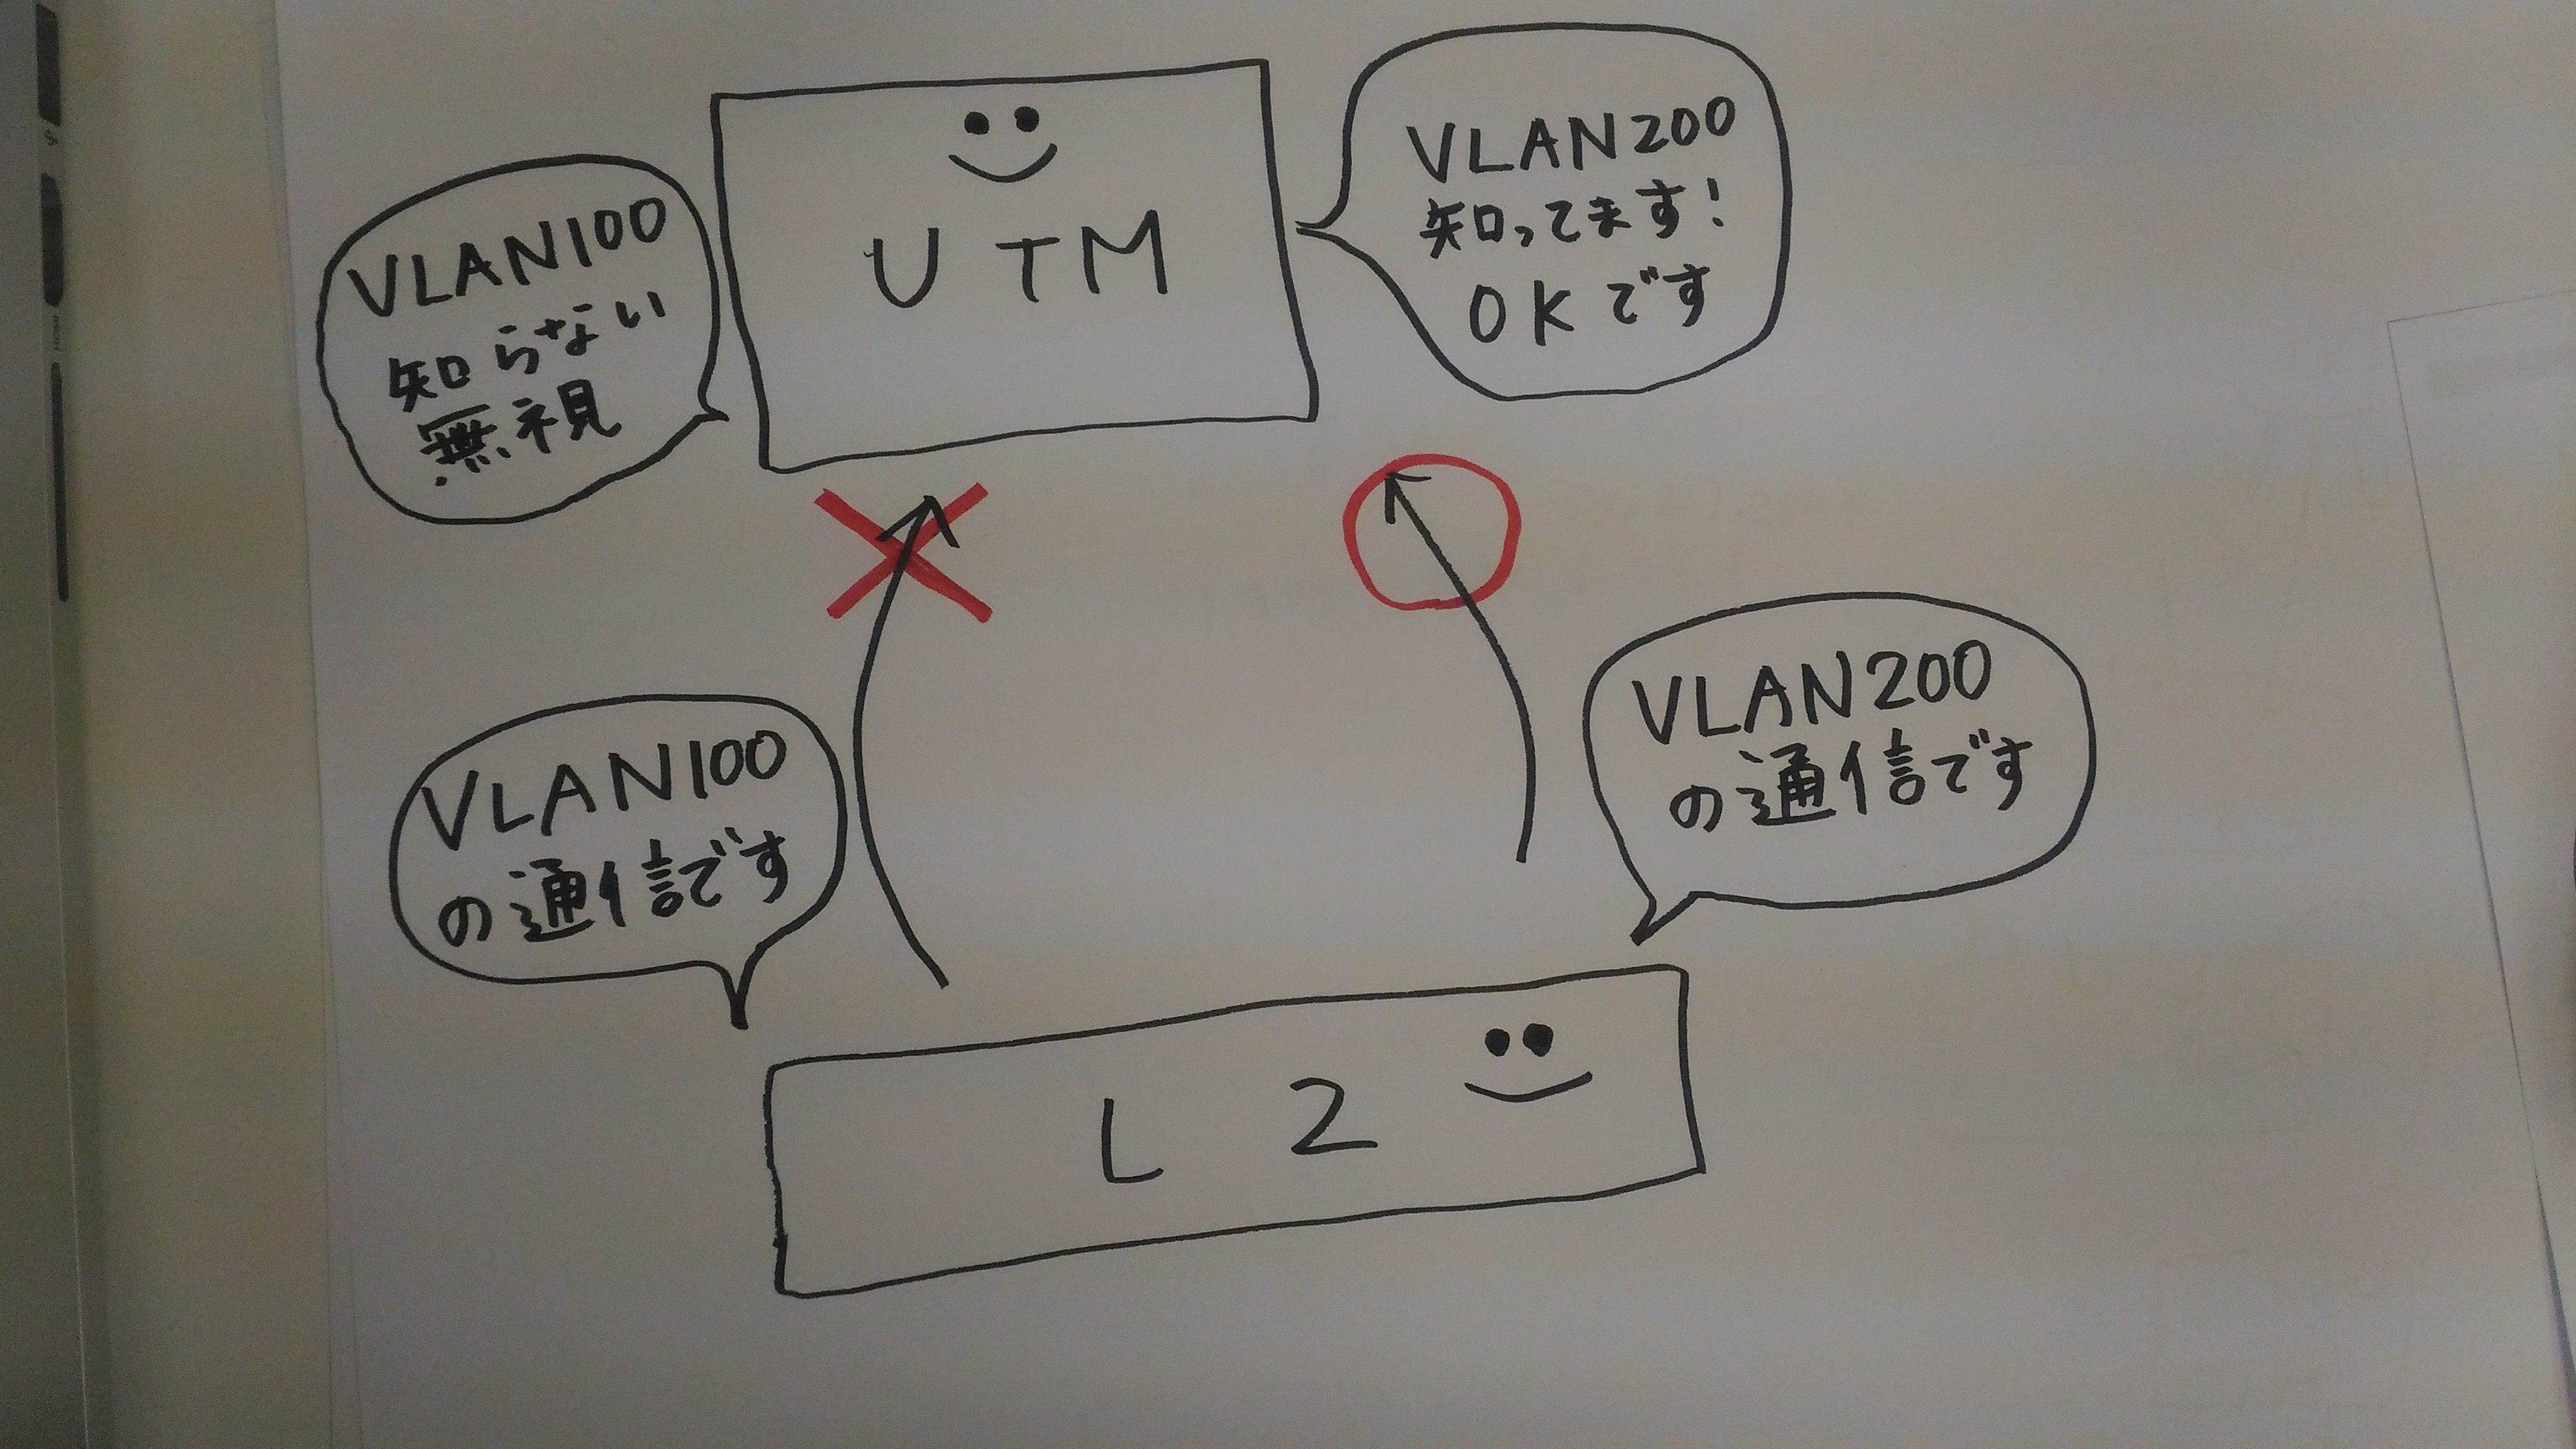 VLAN100
知らない
無視
UTM
VLAN200
知ってます!
OKです
VLAN100
の通信です
VLAN200
の通信です
L2